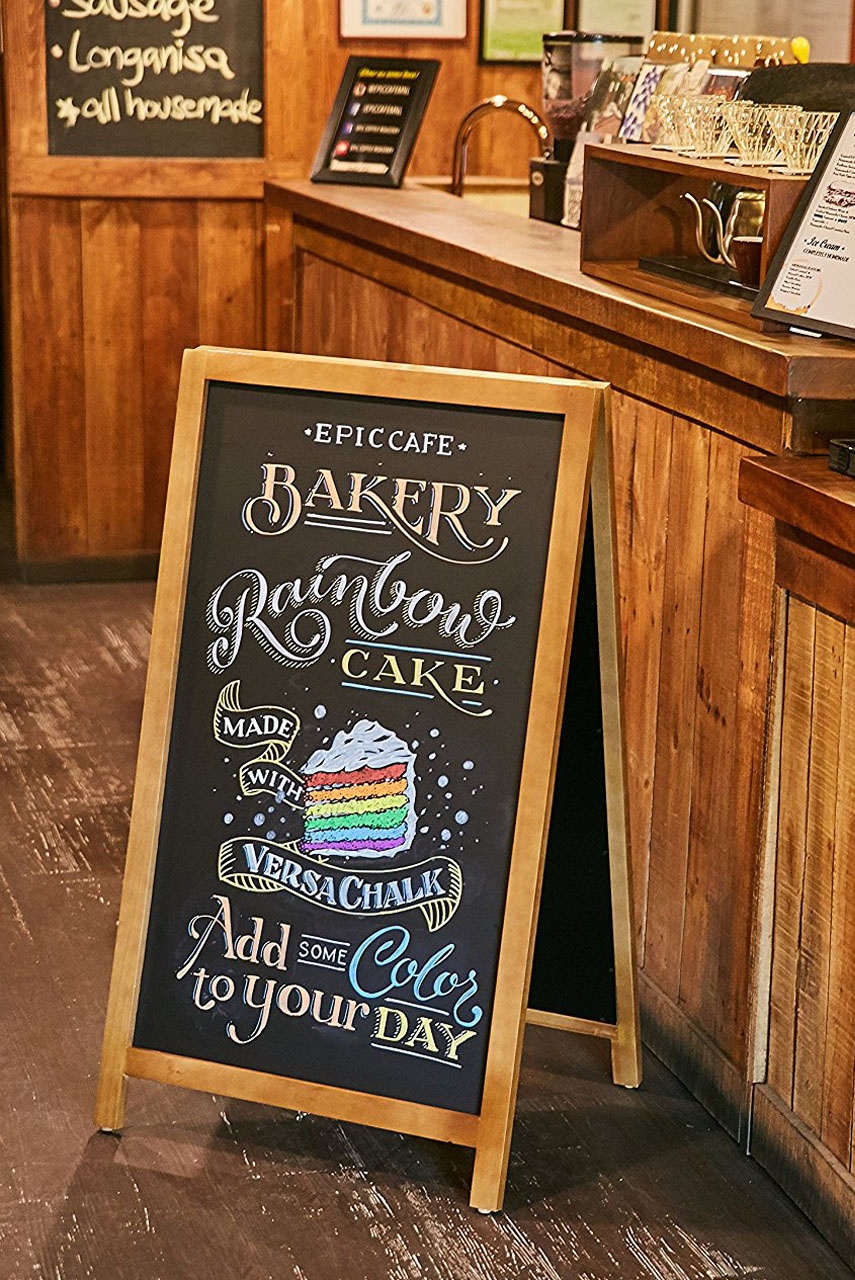 Sausage
• Longanisa
*all housemade
• EPIC CAFE •
BAKERY
Rainbow
CAKE
MADE
WITH
VERSACHALK
Add SOME Color
to your DAY
• Ice Cream •
COMPLETELY HOMEMADE